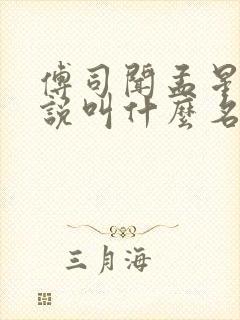 傅司聞孟星
說叫什麼名
三月海